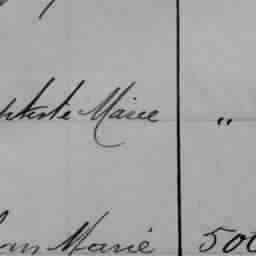 ptiste Marie "
an Marie 500